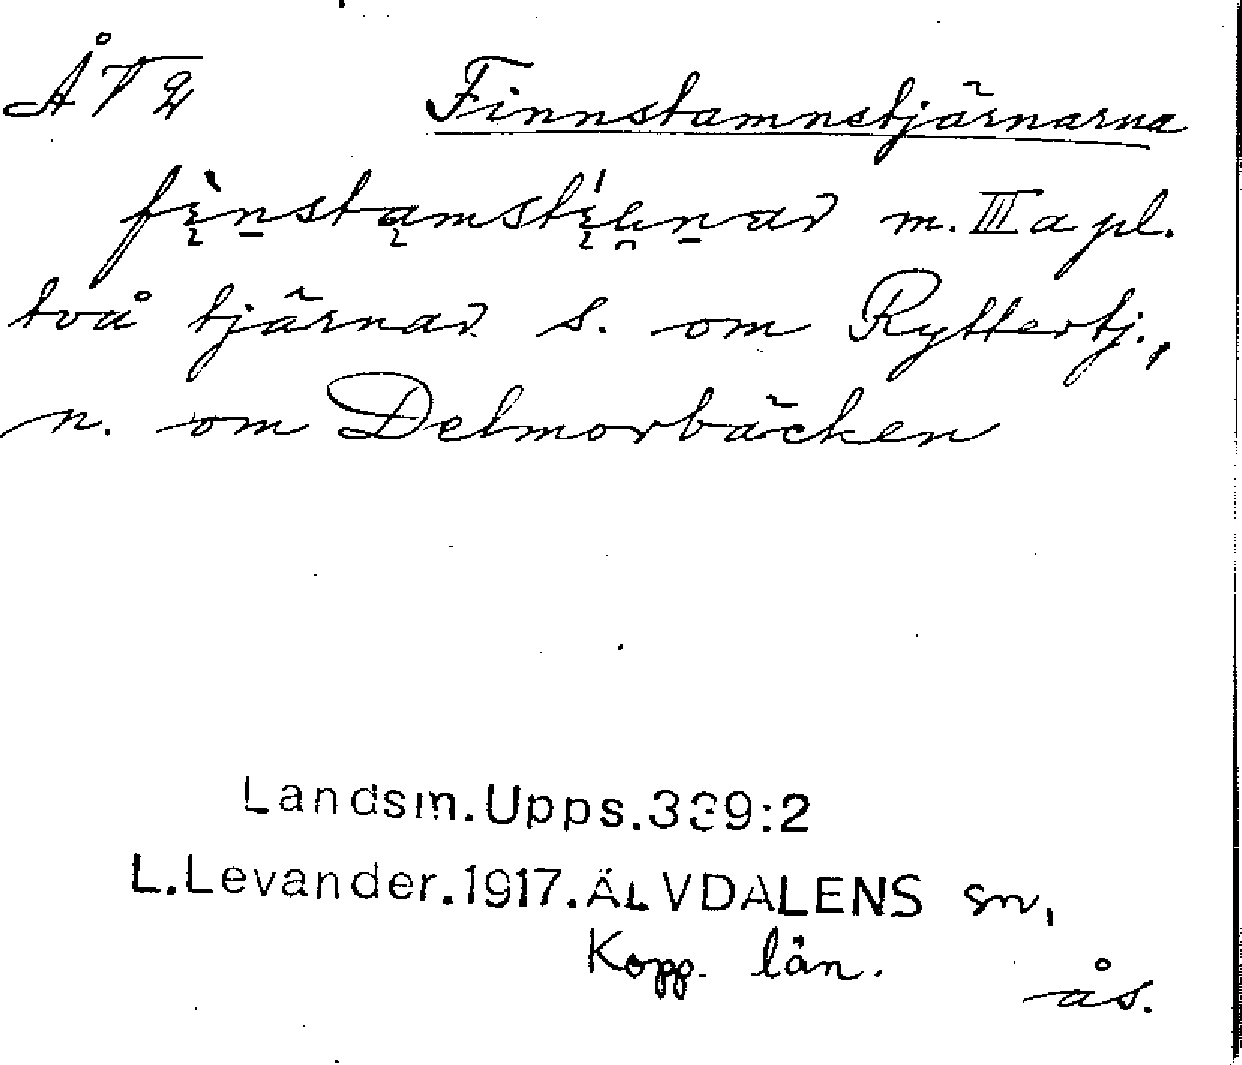 ÅT2 Finnstamnstjärnarna
m. III a pl.
två tjärnar s. om Ryttertj.,
n. om Delmorbäcken
Landsm.Upps.339:2
L.Levander.1917.ÄLVDALENS sn,
Kopp. län.
ås.